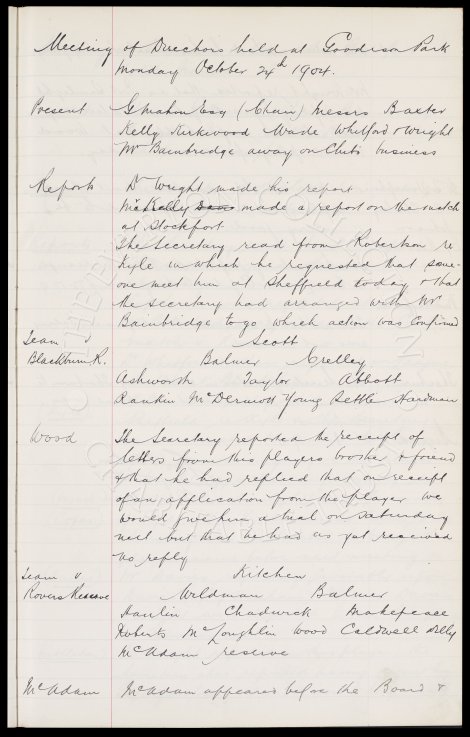 Meeting of Directors held at Goodison Park
Monday October 24th 1904.
Present G Mahon Esq (Chair) Messrs Baxter
Kelly Kirkwood Wade Whitford & Wright
Mr Bainbridge away on Club's business
Reports Dr Wright made his report
Mr Kelly made a report on the match
at Stockport
The Secretary read from Robertson re
Kyle in which he requested that some-
one meet him at Sheffield today & that
the Secretary had arranged with Mr
Bainbridge to go which action was confirmed
Team v Scott
Blackburn R. Balmer Crelley
Ashworth Taylor Abbott
Rankin McDermott Young Settle Hardman
Wood The Secretary reported the receipt of
letters from this players brother & friend
& that he had replied that on receipt
of an application from the player we
would give him a trial on Saturday
next but that he had as yet received
no reply
Team v Kitchen
Rovers Reserve Wildman Balmer
Hanlin Chadwick Makepeace
Roberts McLoughlin Wood Caldwell Dilly
McAdam reserve
McAdam McAdam appeared before the Board &